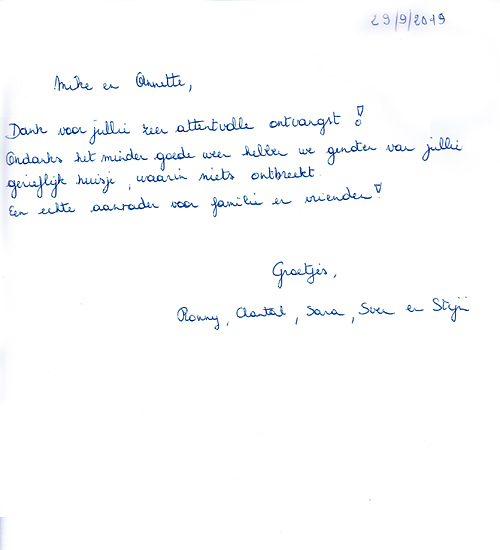 29/9/2019
Mike en Annette,
Dank voor jullie zeer attentvolle ontvangst!
Ondanks het minder goede weer hebben we genoten van jullie
gerieflijk huisje, waarin niets ontbreekt.
Een echte aanrader voor familie en vrienden!
Groetjes,
Ronny, Chantal, Sara, Sven en Stijn